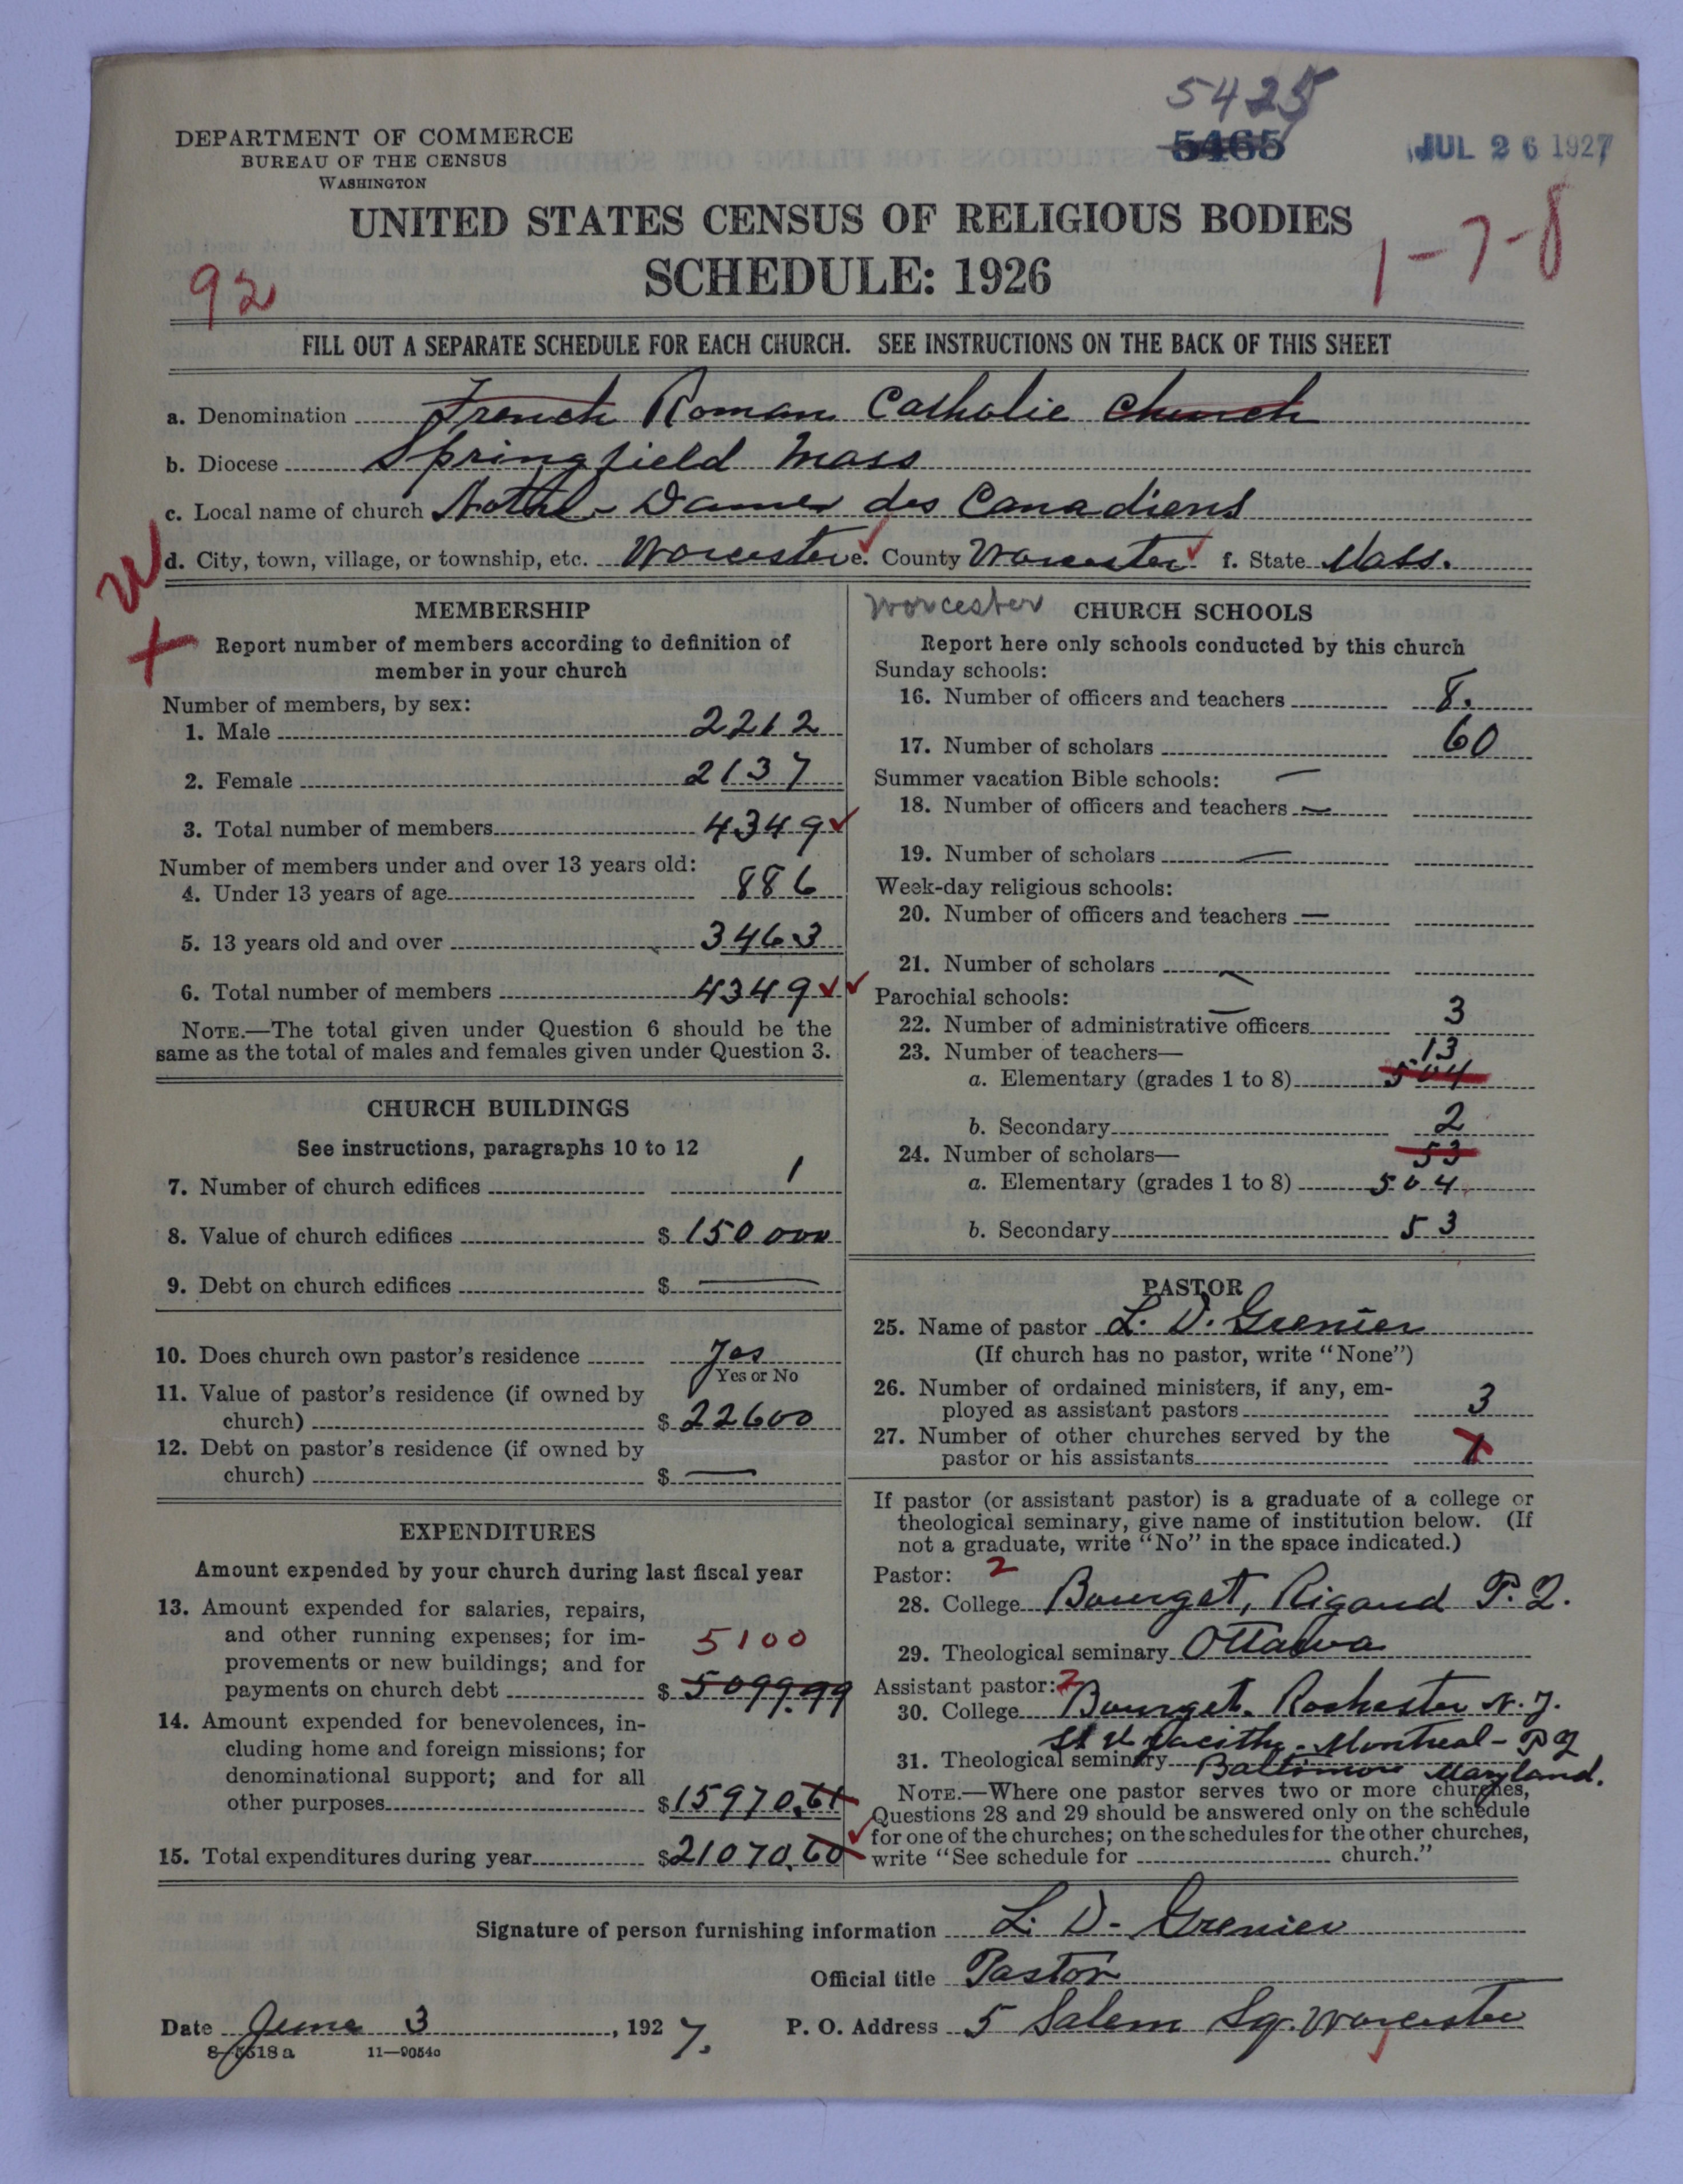 5425
5465
JUL 26 1927
DEPARTMENT OF COMMERCE
BUREAU OF THE CENSUS
WASHINGTON
UNITED STATES CENSUS OF RELIGIOUS BODIES
SCHEDULE: 1926
92
1-7-8
FILL OUT A SEPARATE SCHEDULE FOR EACH CHURCH. SEE INSTRUCTIONS ON THE BACK OF THIS SHEET
a. Denomination French Roman Catholic Church
b. Diocese Springfield Mass
c. Local name of church Notre-Dame des Canadiens
d. City, town, village, or township, etc. Worcester e. County Worcester f. State Mass.
W
+
MEMBERSHIP
Report number of members according to definition of
member in your church
Number of members, by sex:
1. Male 2212
2. Female 2137
3. Total number of members 4349
Number of members under and over 13 years old:
4. Under 13 years of age 886
5. 13 years old and over 3463
6. Total number of members 4349
NOTE.—The total given under Question 6 should be the
same as the total of males and females given under Question 3.
CHURCH BUILDINGS
See instructions, paragraphs 10 to 12
7. Number of church edifices 1
8. Value of church edifices $ 150 000
9. Debt on church edifices $ —
10. Does church own pastor's residence Yes
Yes or No
11. Value of pastor's residence (if owned by
church) $ 22600
12. Debt on pastor's residence (if owned by
church) $ —
EXPENDITURES
Amount expended by your church during last fiscal year
13. Amount expended for salaries, repairs,
and other running expenses; for im-
provements or new buildings; and for 5100
payments on church debt $ 5099.99
14. Amount expended for benevolences, in-
cluding home and foreign missions; for
denominational support; and for all
other purposes $15970.61
15. Total expenditures during year $21070.60
Worcester CHURCH SCHOOLS
Report here only schools conducted by this church
Sunday schools:
16. Number of officers and teachers 8.
17. Number of scholars 60
Summer vacation Bible schools: —
18. Number of officers and teachers —
19. Number of scholars —
Week-day religious schools:
20. Number of officers and teachers —
21. Number of scholars —
Parochial schools:
22. Number of administrative officers 3
23. Number of teachers— 13
a. Elementary (grades 1 to 8) 504
b. Secondary 2
24. Number of scholars— 53
a. Elementary (grades 1 to 8) 504
b. Secondary 53
PASTOR
25. Name of pastor L. D. Grenier
(If church has no pastor, write "None")
26. Number of ordained ministers, if any, em-
ployed as assistant pastors 3
27. Number of other churches served by the
pastor or his assistants
If pastor (or assistant pastor) is a graduate of a college or
theological seminary, give name of institution below. (If
not a graduate, write "No" in the space indicated.)
Pastor: 2
28. College Bourget, Rigaud P.Q.
29. Theological seminary Ottawa
Assistant pastor: 2
30. College Bourget. Rochester N.Y.
St Hyacithe - Montreal - PQ
31. Theological seminary Baltimore Maryland.
NOTE.—Where one pastor serves two or more churches,
Questions 28 and 29 should be answered only on the schedule
for one of the churches; on the schedules for the other churches,
write "See schedule for church."
Signature of person furnishing information L. D. Grenier
Official title Pastor
Date June 3, 1927. P. O. Address 5 Salem Sq. Worcester
8-5518a 11—9054c